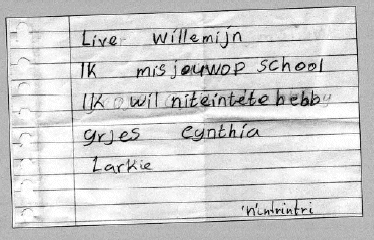 Live Willemijn
Ik mis jouwop school
Ik wil niteintete hebby
grjes Cynthia
Larkie